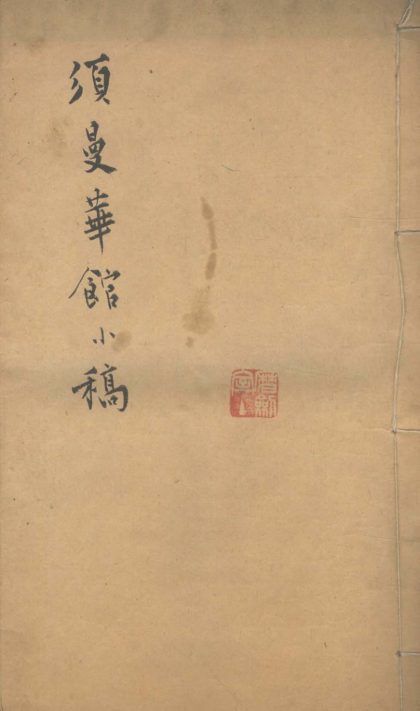 須曼華館小稿